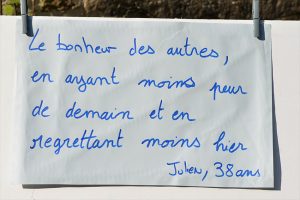 Le bonheur des autres,
en ayant moins peur
de demain et en
regrettant moins hier
Julien, 38 ans